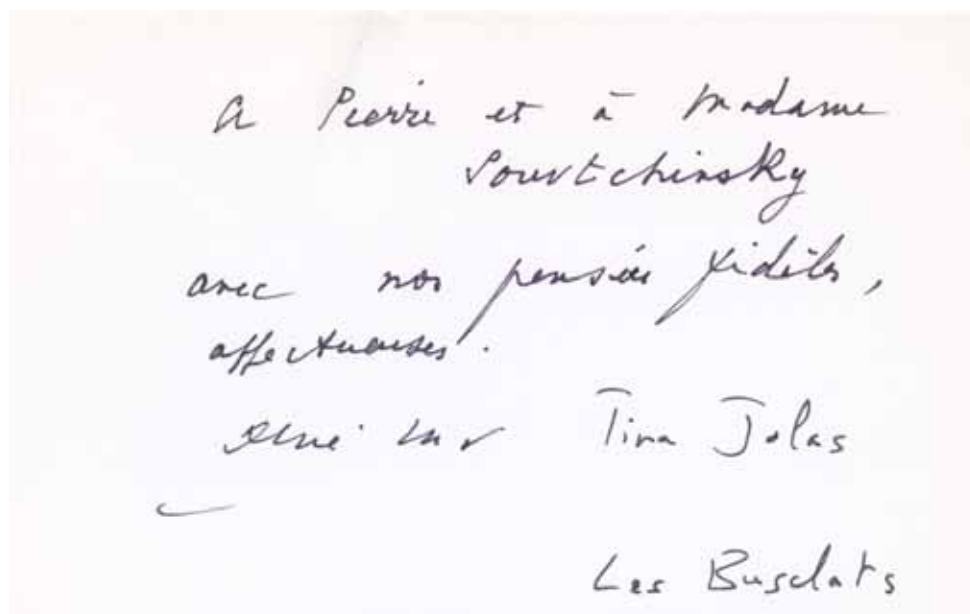 A Pierre et à Madame
Souvtchinsky
avec nos pensées fidèles,
affectueuses.
René Char Tina Jolas
Les Busclats